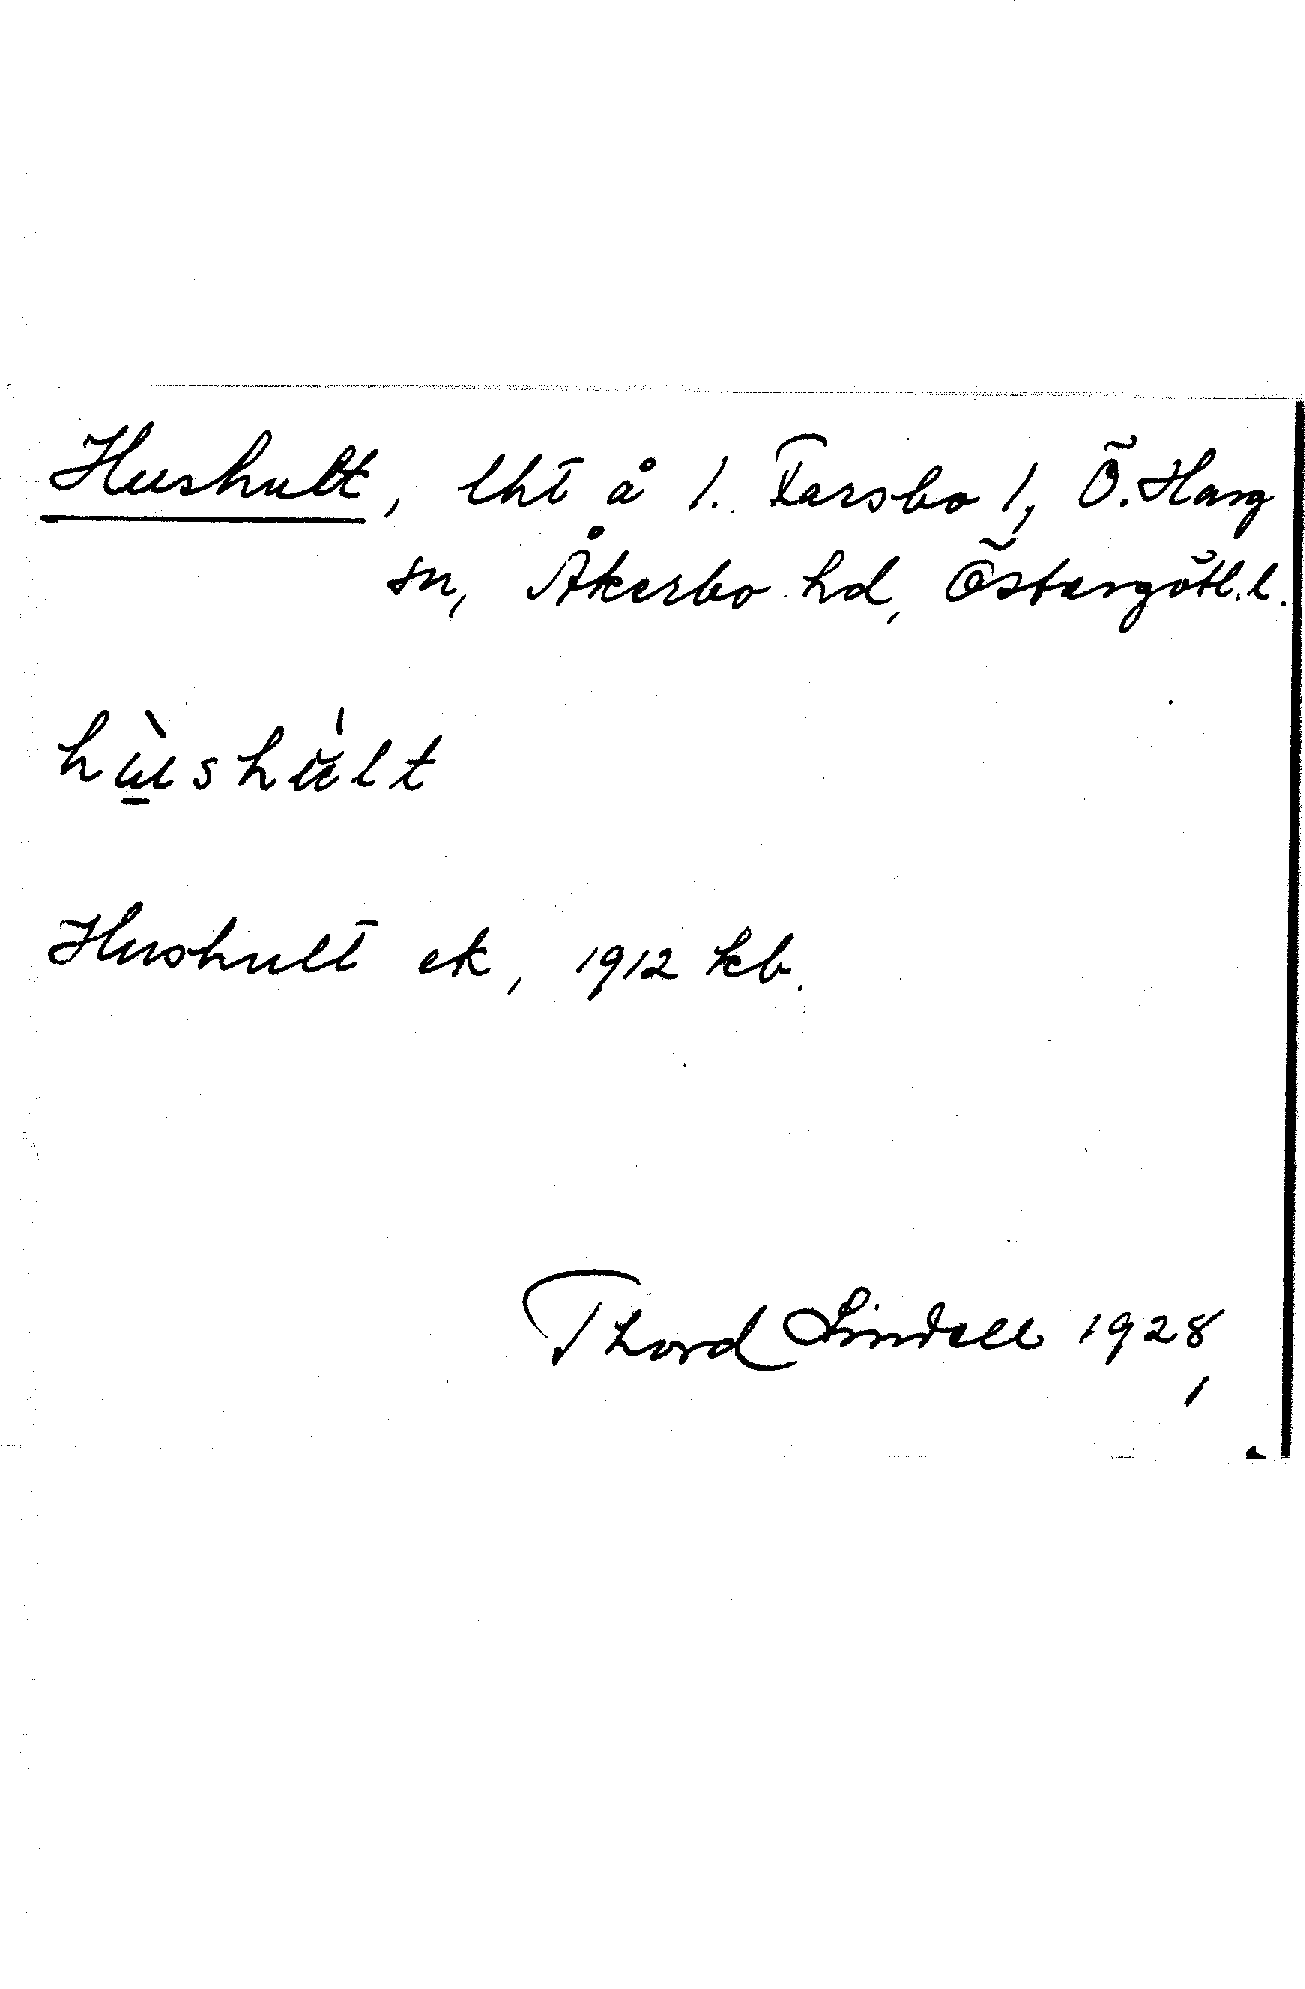 Hushult, lht å 1. Farsbo 1, Ö. Harg
sn, Åkerbo hd, Östergötl. l.
hùshúlt
Hushult ek, 1912 kb.
Thord Lindell 1928